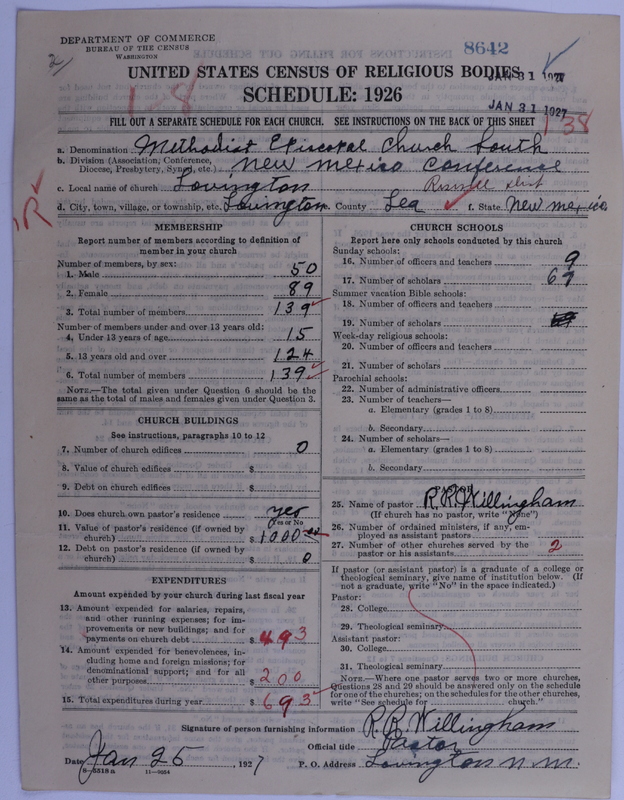 DEPARTMENT OF COMMERCE
BUREAU OF THE CENSUS
WASHINGTON
8642
JAN 31 1927
UNITED STATES CENSUS OF RELIGIOUS BODIES
SCHEDULE: 1926
JAN 31 1927
1-8
1 38
FILL OUT A SEPARATE SCHEDULE FOR EACH CHURCH. SEE INSTRUCTIONS ON THE BACK OF THIS SHEET
a. Denomination Methodist Episcopal Church South
b. Division (Association, Conference, Diocese, Presbytery, Synod, etc.) New Mexico Conference
c. Local name of church Lovington
d. City, town, village, or township, etc. Lovington e. County Lea f. State New Mexico
MEMBERSHIP
Report number of members according to definition of
member in your church
Number of members, by sex:
1. Male 50
2. Female 89
3. Total number of members 139
Number of members under and over 13 years old:
4. Under 13 years of age 15
5. 13 years old and over 124
6. Total number of members 139
NOTE.—The total given under Question 6 should be the
same as the total of males and females given under Question 3.
CHURCH BUILDINGS
See instructions, paragraphs 10 to 12
7. Number of church edifices 0
8. Value of church edifices $
9. Debt on church edifices $
10. Does church own pastor's residence yes
(Yes or No)
11. Value of pastor's residence (if owned by
church) $ 1000.00
12. Debt on pastor's residence (if owned by
church) $ 0
EXPENDITURES
Amount expended by your church during last fiscal year
13. Amount expended for salaries, repairs,
and other running expenses; for im-
provements or new buildings; and for
payments on church debt $ 493
14. Amount expended for benevolences, in-
cluding home and foreign missions; for
denominational support; and for all
other purposes $ 200
15. Total expenditures during year $ 693
CHURCH SCHOOLS
Report here only schools conducted by this church
Sunday schools:
16. Number of officers and teachers 9
17. Number of scholars 69
Summer vacation Bible schools:
18. Number of officers and teachers
19. Number of scholars
Week-day religious schools:
20. Number of officers and teachers
21. Number of scholars
Parochial schools:
22. Number of administrative officers
23. Number of teachers—
a. Elementary (grades 1 to 8)
b. Secondary
24. Number of scholars—
a. Elementary (grades 1 to 8)
b. Secondary
PASTOR
25. Name of pastor R. R. Willingham
(If church has no pastor, write "None")
26. Number of ordained ministers, if any, em-
ployed as assistant pastors
27. Number of other churches served by the
pastor or his assistants 2
If pastor (or assistant pastor) is a graduate of a college or
theological seminary, give name of institution below. (If
not a graduate, write "No" in the space indicated.)
Pastor:
28. College
29. Theological seminary
Assistant pastor:
30. College
31. Theological seminary
NOTE.—Where one pastor serves two or more churches,
Questions 28 and 29 should be answered only on the schedule
for one of the churches; on the schedules for the other churches,
write "See schedule for church."
Signature of person furnishing information R. R. Willingham
Official title Pastor
Date Jan 25, 1927 P. O. Address Lovington N. M.
8-5518a 11-9054